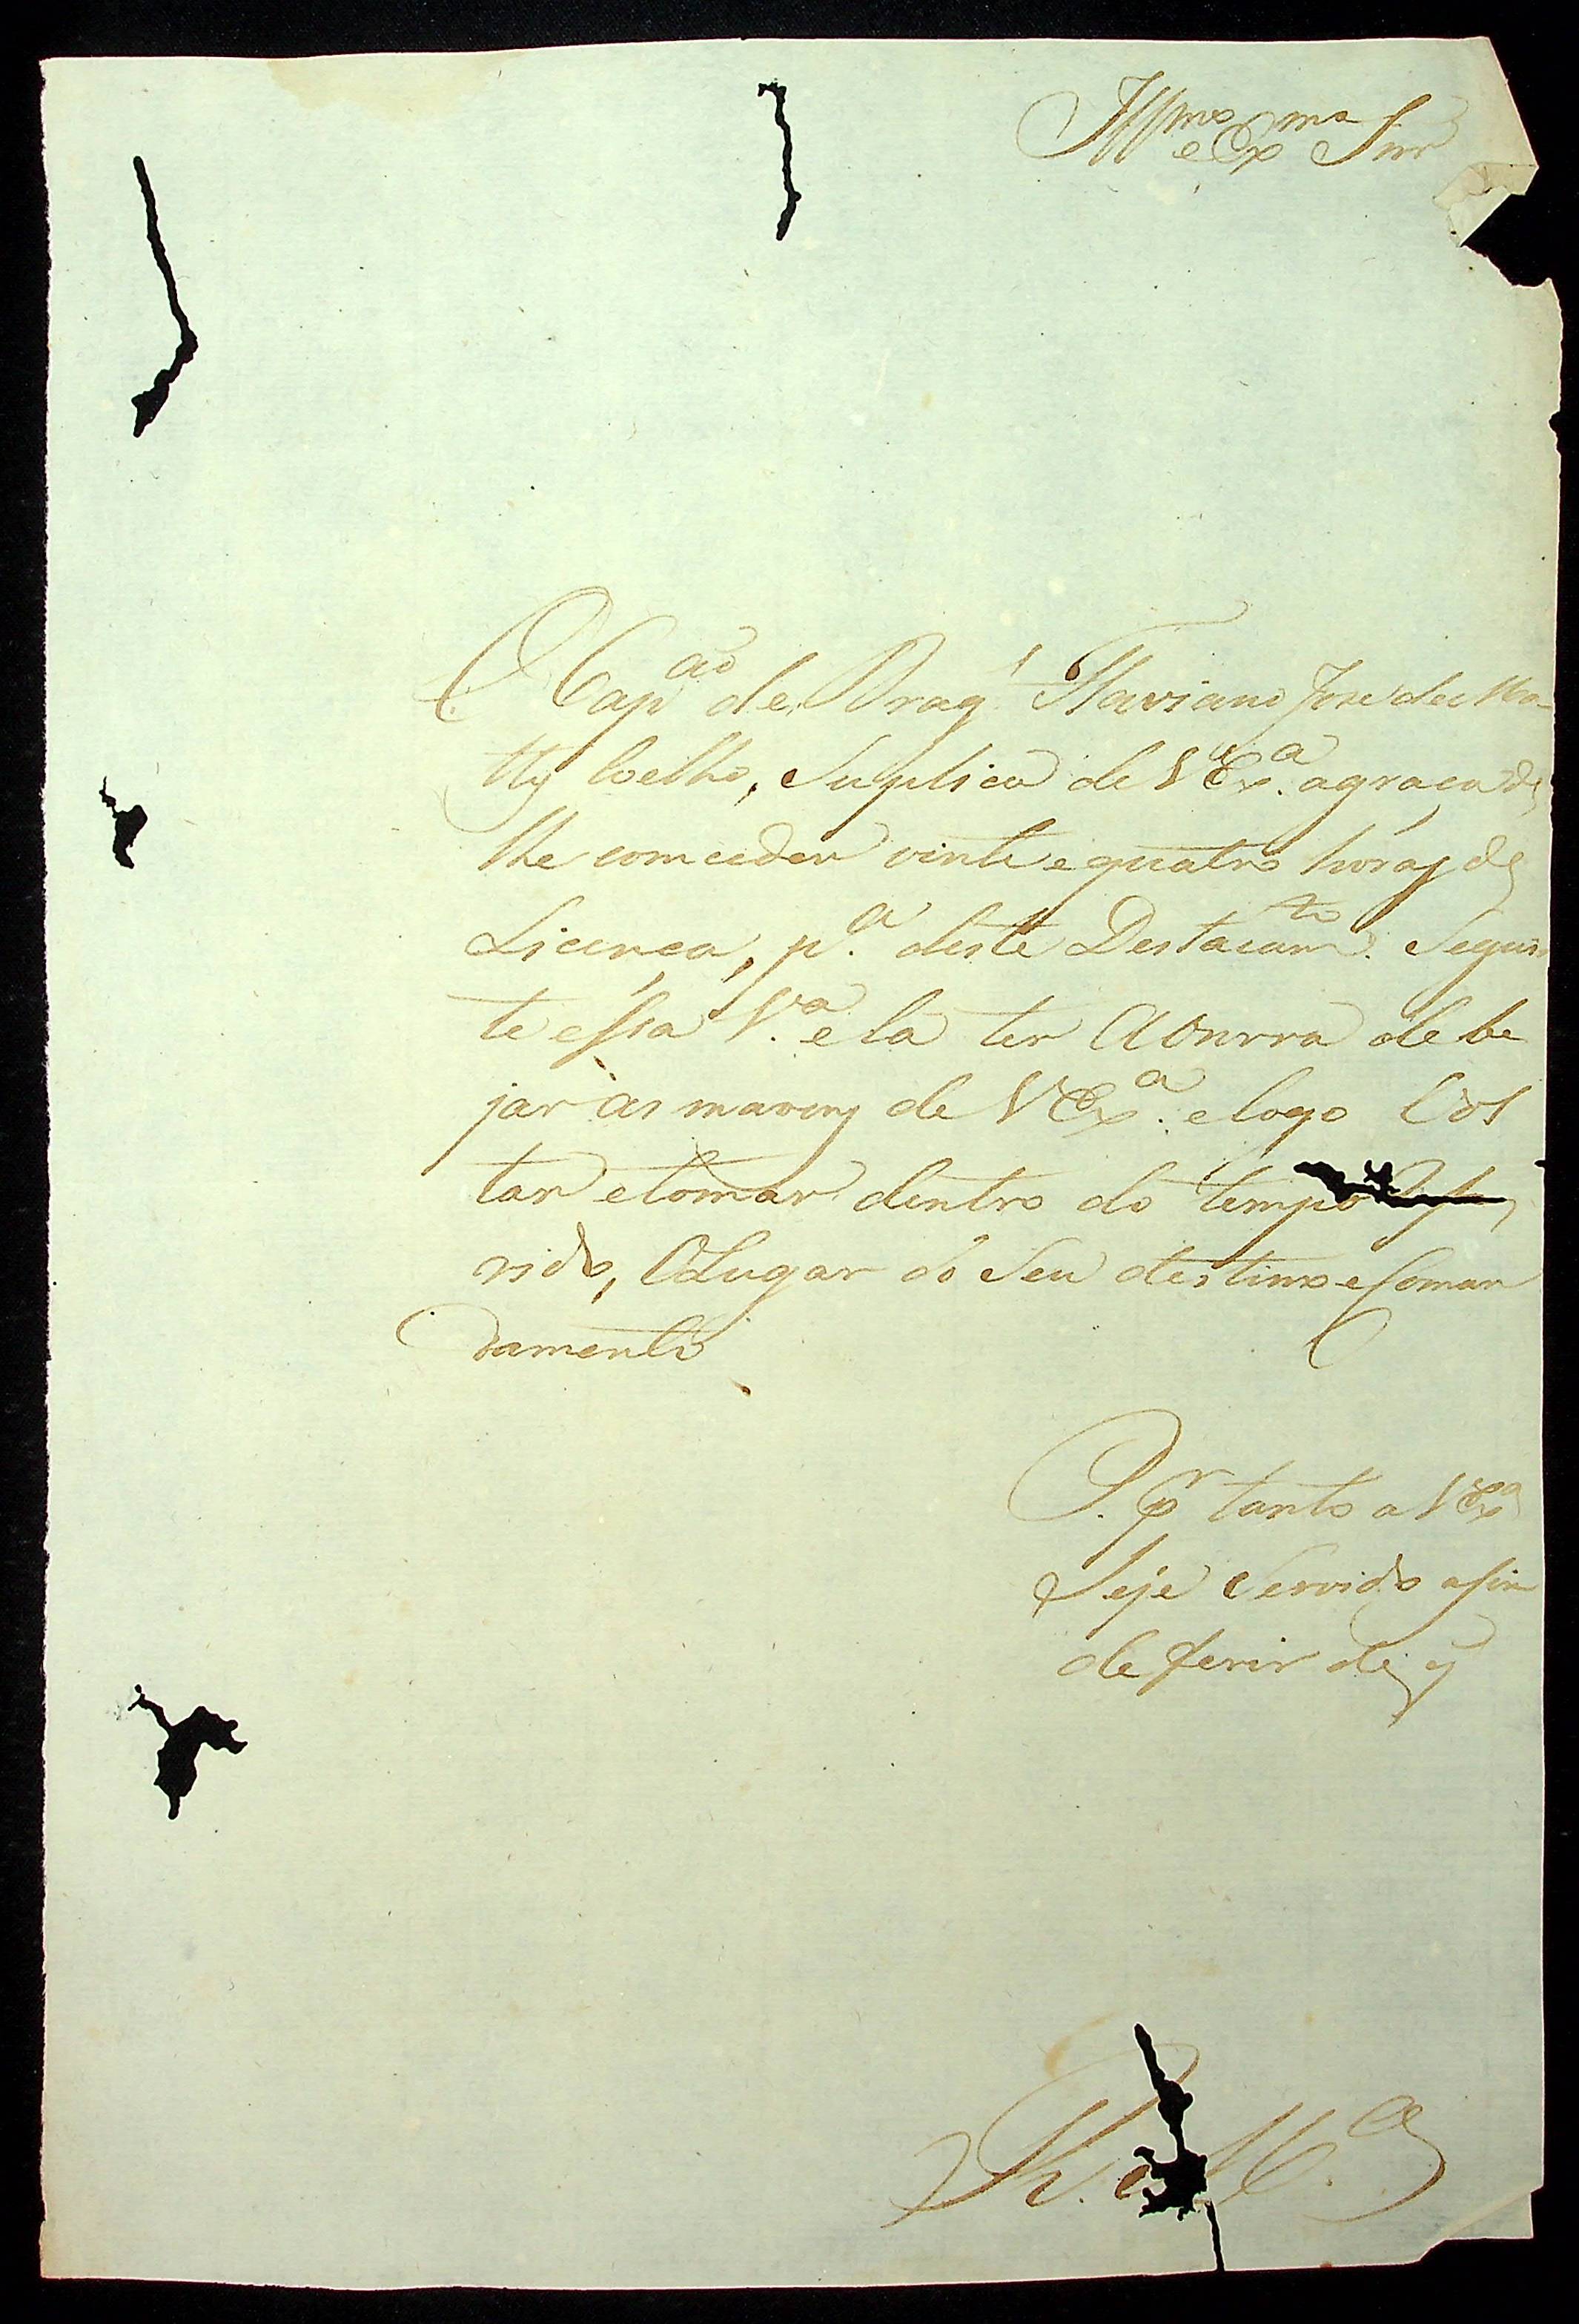 Illmo e Exmo Snr
O Capão de Drags Flaviano José de Ma-
ttos Coelho, Suplica de VExa. agraca de
lhe comceder vinte e quatro hóras de
Licenca, pa. deste Destacamto. Seguir
te essa Va. e la ter Aonrra de be
jar as maons de VExa. e logo Vol
tar e tomar dentro do tempo
rido, OLugar do Seu destino e Coman
damento
P. Pr tanto a VExa
Seje Servido asim
deferir de q
R. M.ce